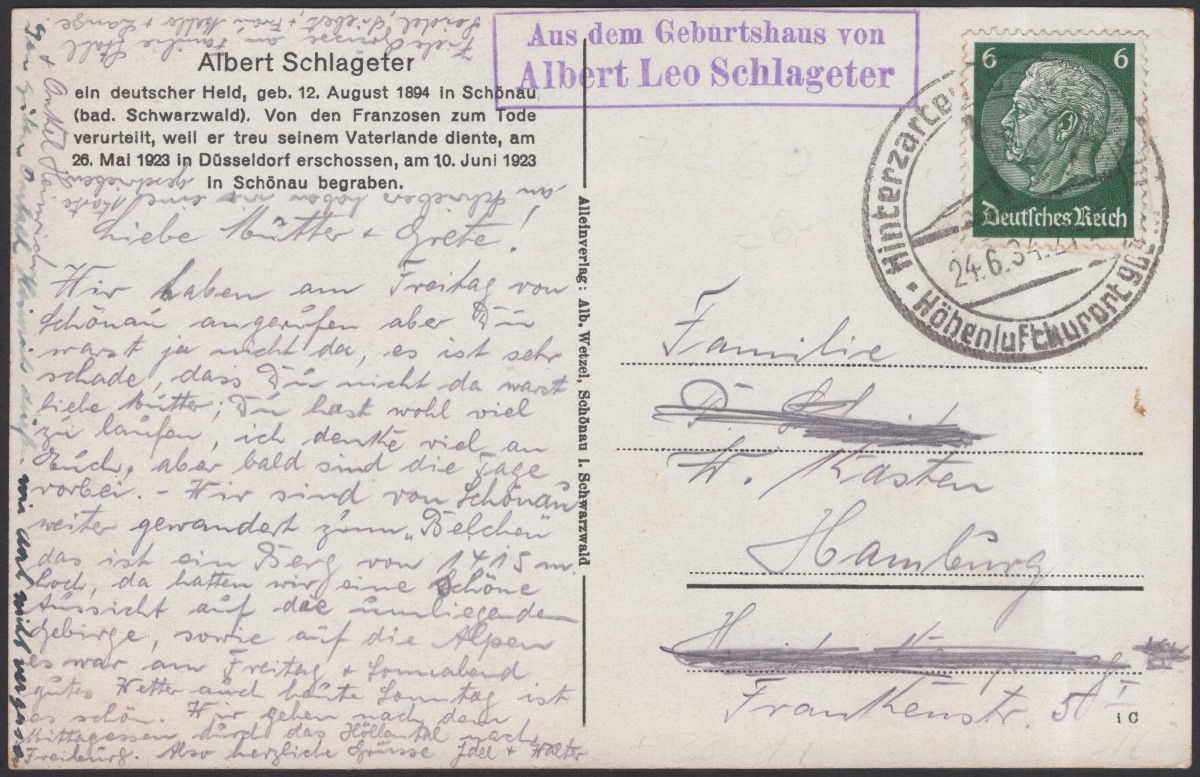 Aus dem Geburtshaus von
Albert Leo Schlageter
Albert Schlageter
ein deutscher Held, geb. 12. August 1894 in Schönau
(bad. Schwarzwald). Von den Franzosen zum Tode
verurteilt, weil er treu seinem Vaterlande diente, am
26. Mai 1923 in Düsseldorf erschossen, am 10. Juni 1923
in Schönau begraben.
Liebe Mutter + Grete!
Wir haben am Freitag von
Schönau angerufen aber Du
warst ja nicht da, es ist sehr
schade, dass Du nicht da warst
liebe Mutter; Du hast wohl viel
zu laufen, ich denke viel an
Euch, aber bald sind die Tage
vorbei. - Wir sind von Schönau
weiter gewandert zum „Belchen"
das ist ein Berg von 1415 m.
hoch, da hatten wir eine schöne
Aussicht auf die umliegenden
Gebirge, sowie auf die Alpen
es war am Freitag + Sonnabend
gutes Wetter auch heute Sonntag ist
es schön. Wir gehen nach dem
Mittagessen durch das Höllental nach
Freiburg. Also herzliche Grüsse Idel + Walter
Viele Grüsse an Familie Stall
Seidel, + Frau + Lange.
an schreiben haben wir eine Karte
geschrieben
+ Onkel Heinrich
Alleinverlag: Alb. Wetzel, Schönau i. Schwarzwald
6 6
Deutsches Reich
Hinterzarten
24.6.34.
Höhenluftkurort
Familie
W. Kasten
Hamburg
Frankenstr. 5 I
i C